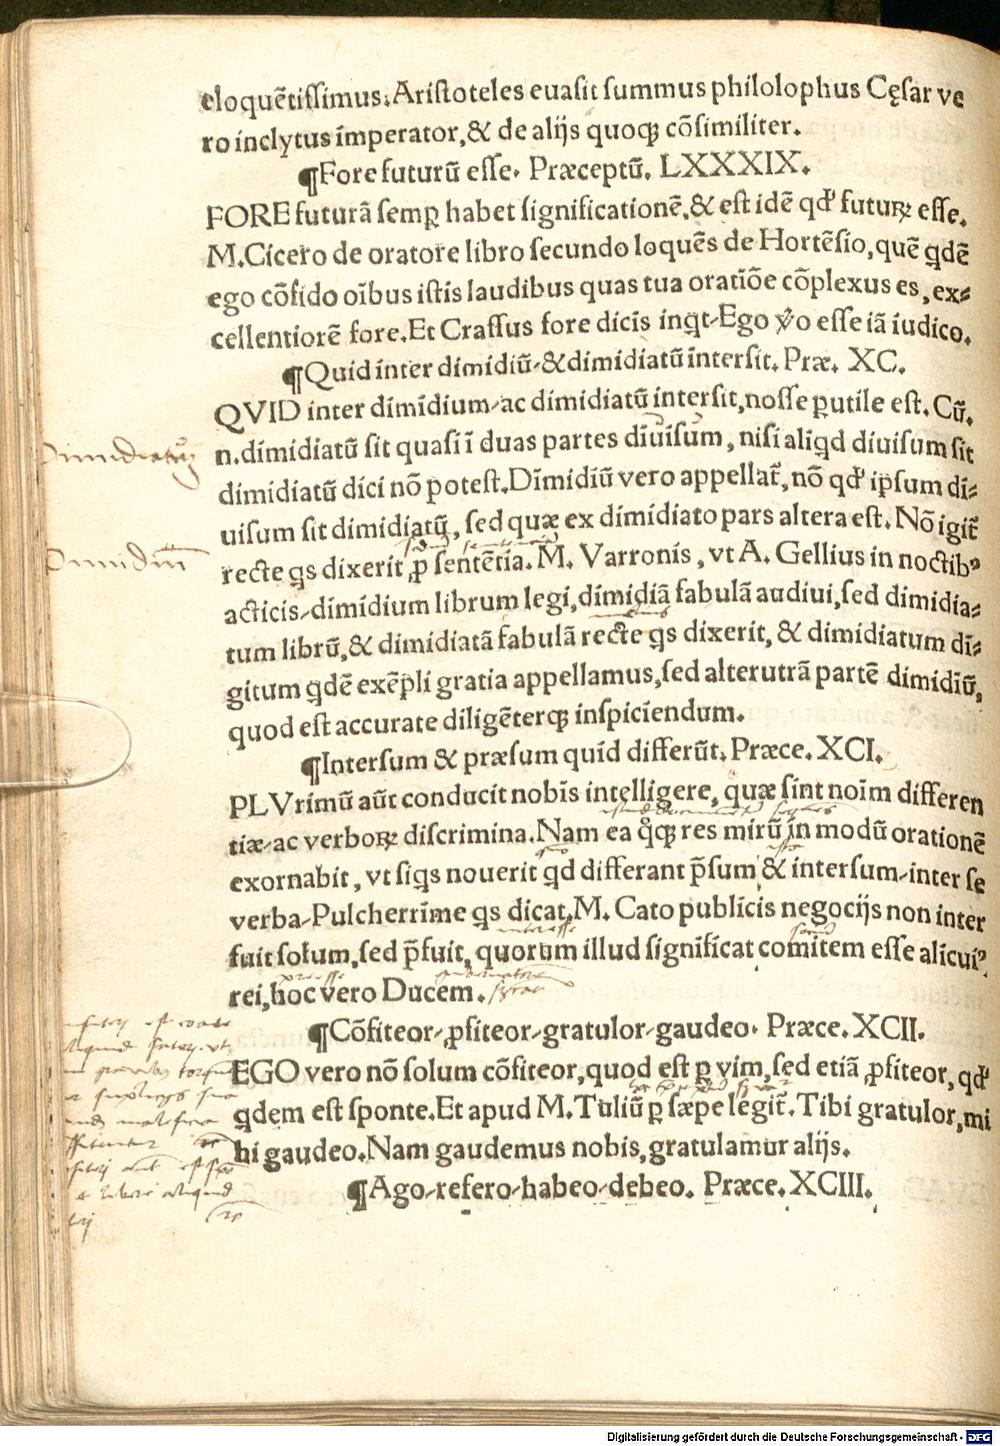 eloquētissimus. Aristoteles euasit summus philolophus Cęsar ve
ro inclytus imperator, & de alijs quoqꝫ cōsimiliter.
¶Fore futurū esse. Præceptū. LXXXIX.
FORE futurā semꝑ habet significationē, & est idē qd' futuꝝ esse.
M. Cicero de oratore libro secundo loquēs de Hortēsio, quē qdē
ego cōfido oībus istis laudibus quas tua oratiōe cōplexus es, ex⸗
cellentiorē fore. Et Crassus fore dicis inqt⸗Ego v̊o esse iā iudico.
¶Quid inter dimidiū⸗& dimidiatū intersit. Præ. XC.
QVID inter dimidium⸗ac dimidiatū intersit, nosse ꝑutile est. Cū.
n. dimidiatū sit quasi ī duas partes diuisum, nisi aliqd diuisum sit
dimidiatū dici nō potest. Dimidiū vero appellat̃, nō qd' ipsum di⸗
uisum sit dimidiatū, sed quæ ex dimidiato pars altera est. Nō igit̃
recte qs dixerit, ꝓ sentētia. M. Varronis, vt A. Gellius in noctibꝰ
acticis⸗dimidium librum legi, dimidiā fabulā audiui, sed dimidia⸗
tum librū, & dimidiatā fabulā recte qs dixerit, & dimidiatum di⸗
gitum qdē exēpli gratia appellamus, sed alterutrā partē dimidiū,
quod est accurate diligēterqꝫ inspiciendum.
¶Intersum & præsum quid differūt. Præce. XCI.
PLVrimū aūt conducit nobis intelligere, quæ sint noīm differen
tiæ⸗ac verboꝝ discrimina. Nam ea qͦqꝫ res mirū in modū orationē
exornabit, vt siqs nouerit qd differant p̄sum & intersum⸗inter se
verba⸗Pulcherrime qs dicat. M. Cato publicis negocijs non inter
fuit solum, sed p̄fuit, quorum illud significat comitem esse alicuiꝰ
rei, hoc vero Ducem.
¶Cōfiteor⸗ꝓfiteor⸗gratulor⸗gaudeo. Præce. XCII.
EGO vero nō solum cōfiteor, quod est ꝑ vim, sed etiā ꝓfiteor, qd'
qdem est sponte. Et apud M. Tuliū ꝑ sæpe legit̃. Tibi gratulor, mi
hi gaudeo. Nam gaudemus nobis, gratulamur alijs.
¶Ago⸗refero⸗habeo⸗debeo. Præce. XCIII.
Dimidiatum
Dimidiū
Digitalisierung gefördert durch die Deutsche Forschungsgemeinschaft - DFG